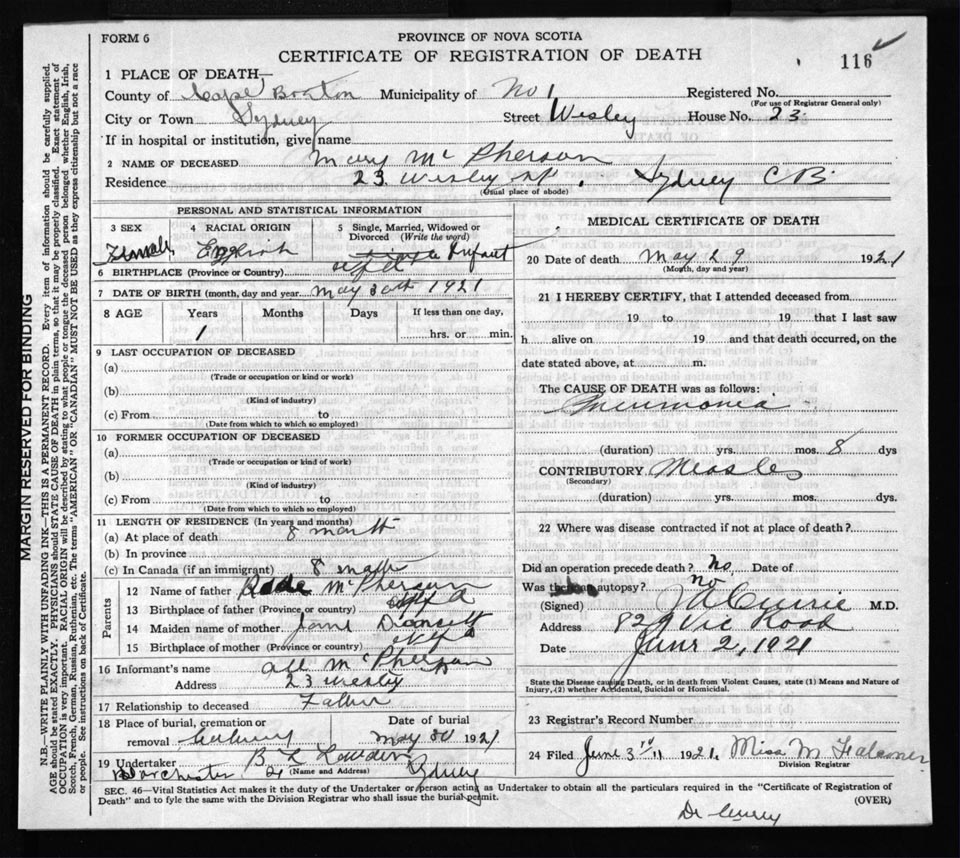 FORM 6
PROVINCE OF NOVA SCOTIA
CERTIFICATE OF REGISTRATION OF DEATH
116
1 PLACE OF DEATH—
County of Cape Breton Municipality of No 1 Registered No.
(For use of Registrar General only)
City or Town Sydney Street Wesley House No. 23
If in hospital or institution, give name
2 NAME OF DECEASED Mary McPherson
Residence 23 Wesley St. Sydney C B.
(Usual place of abode)
PERSONAL AND STATISTICAL INFORMATION
3 SEX 4 RACIAL ORIGIN 5 Single, Married, Widowed or Divorced (Write the word)
Female English Infant
6 BIRTHPLACE (Province or Country) Nfld
7 DATE OF BIRTH (month, day and year May 30th 1921
8 AGE Years Months Days If less than one day,
1 hrs. or min.
9 LAST OCCUPATION OF DECEASED
(a)
(Trade or occupation or kind or work)
(b)
(Kind of industry)
(c) From to
(Date from which to which so employed)
10 FORMER OCCUPATION OF DECEASED
(a)
(Trade or occupation or kind of work)
(b)
(Kind of industry)
(c) From to
(Date from which to which so employed)
11 LENGTH OF RESIDENCE (In years and months)
(a) At place of death 8 month
(b) In province
(c) In Canada (if an immigrant) 8 month
Parents
12 Name of father McPherson
13 Birthplace of father (Province or country) Nfld
14 Maiden name of mother Jane
15 Birthplace of mother (Province or country) Nfld
16 Informant's name McPherson
Address 23 Wesley
17 Relationship to deceased Father
18 Place of burial, cremation or removal Date of burial
May 30 1921
19 Undertaker B L Sydney
Dorchester St (Name and Address)
MEDICAL CERTIFICATE OF DEATH
20 Date of death May 29 1921
(Month, day and year)
21 I HEREBY CERTIFY, that I attended deceased from
19 to 19 that I last saw
h alive on 19 and that death occurred, on the
date stated above, at m.
The CAUSE OF DEATH was as follows:
Pneumonia
(duration) yrs. mos. 8 dys
CONTRIBUTORY Measles
(Secondary)
(duration) yrs. mos. dys.
22 Where was disease contracted if not at place of death?
Did an operation precede death? No Date of
Was autopsy? no
(Signed) M.D.
Address Vic Road
Date June 2, 1921
State the Disease causing Death, or in death from Violent Causes, state (1) Means and Nature of
Injury, (2) whether Accidental, Suicidal or Homicidal.
23 Registrar's Record Number
24 Filed June 3rd 1921. Miss M Falconer
Division Registrar
SEC. 46—Vital Statistics Act makes it the duty of the Undertaker or person acting as Undertaker to obtain all the particulars required in the "Certificate of Registration of
Death" and to fyle the same with the Division Registrar who shall issue the burial permit. (OVER)
MARGIN RESERVED FOR BINDING
N.B.—WRITE PLAINLY WITH UNFADING INK—THIS IS A PERMANENT RECORD. Every item of information should be carefully supplied.
AGE should be stated EXACTLY. PHYSICIANS should STATE CAUSE OF DEATH in plain terms, so that it may be properly classified. Exact statement of
OCCUPATION is very important. RACIAL ORIGIN will be described by stating to what people or tongue the deceased person belonged whether English, Irish,
Scotch, French, German, Russian, Ruthenian, etc. The terms "AMERICAN" or "CANADIAN" MUST NOT BE USED as they express citizenship but not a race
or people. See instructions on back of Certificate.